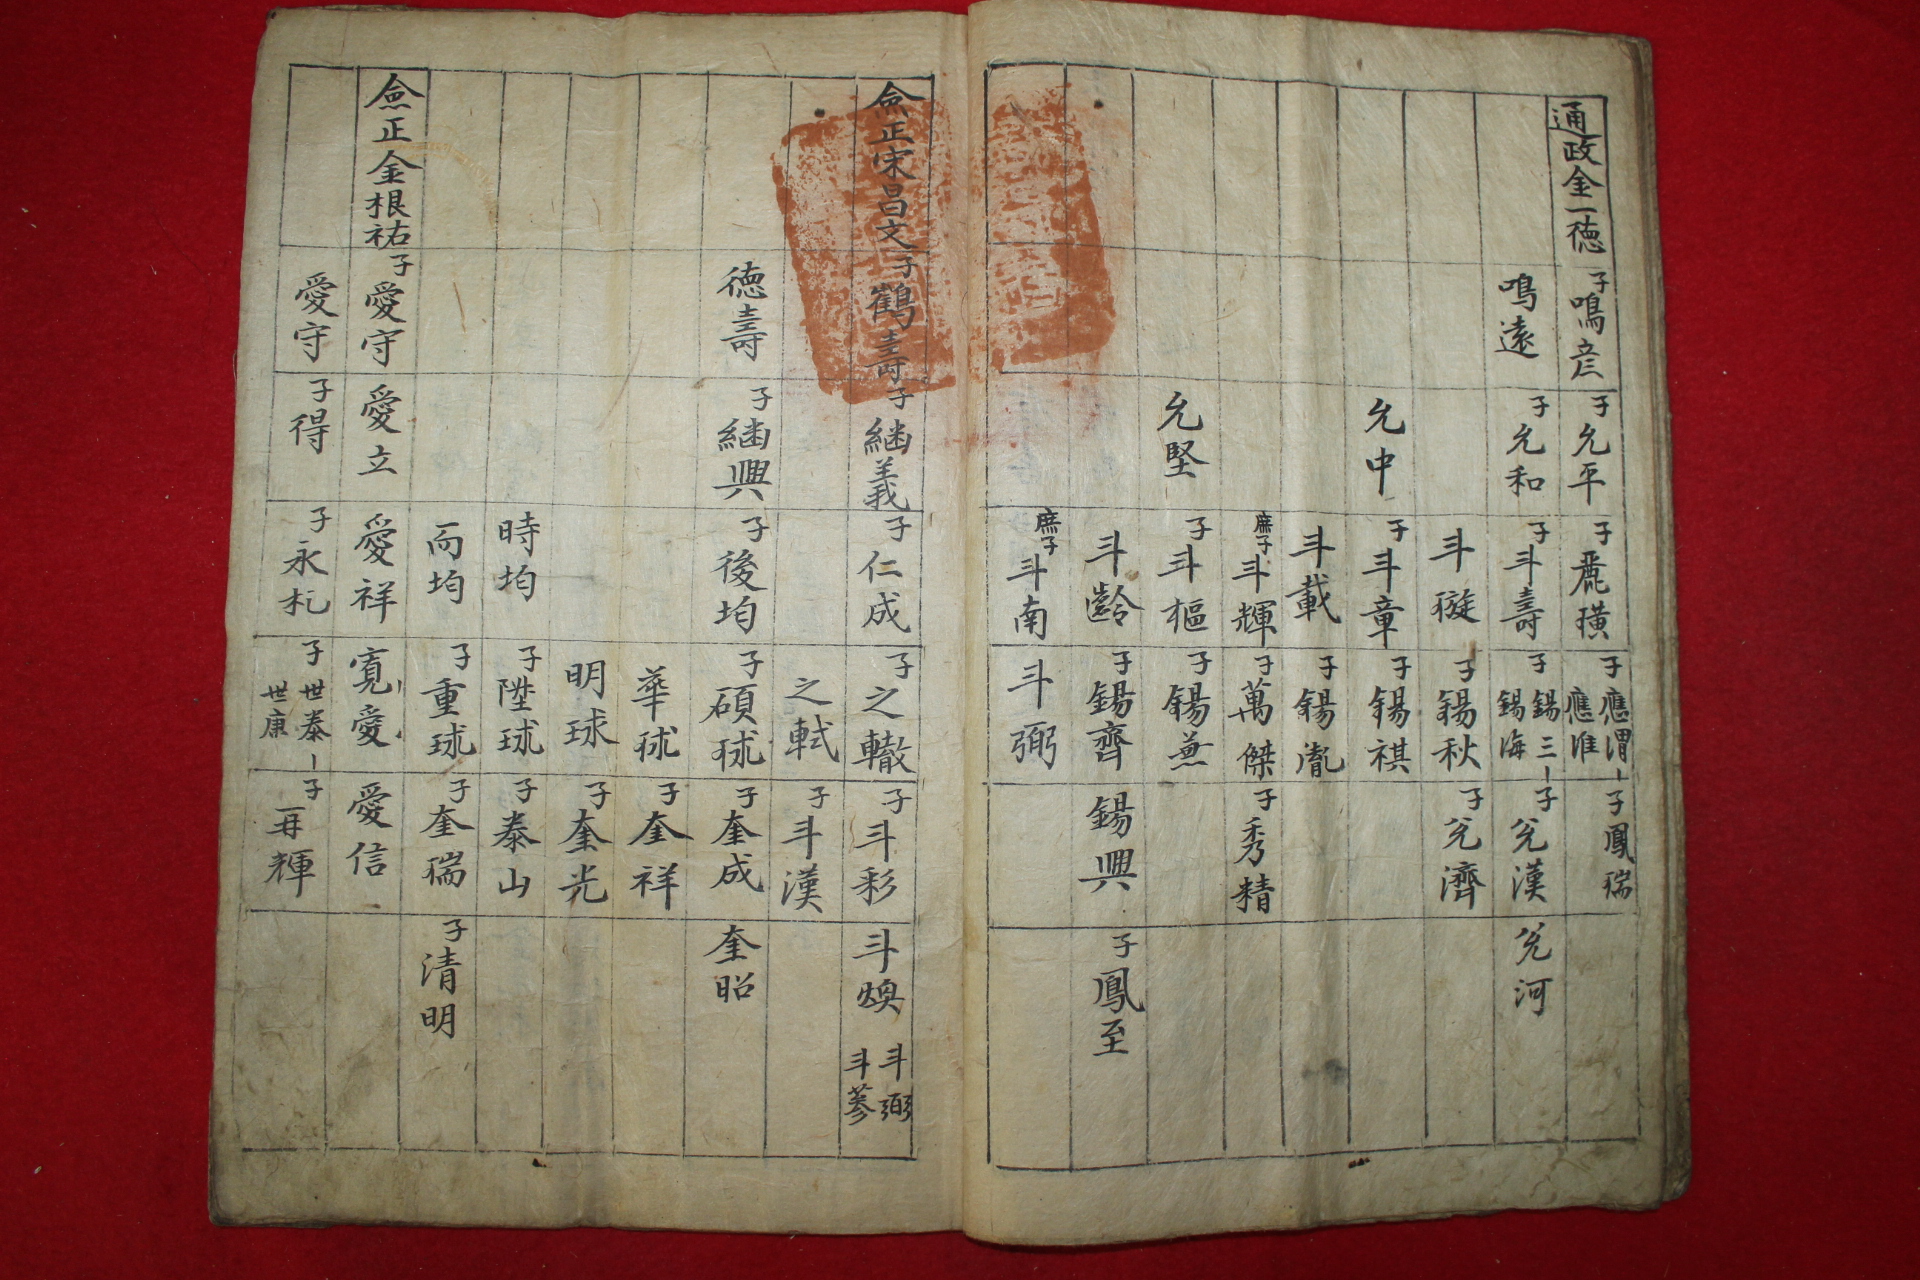 通政金一德 子鳴彦 子允平 子麂璜 子應渭 應淮 子鳳瑞
鳴遠 子允和 子斗壽 子錫三 錫海 子兊漢 兊河
斗璇 子錫秋 子兊濟
允中 子斗章 子錫祺
斗載 子錫胤
庶子斗輝 子萬傑 子秀精
允堅 子斗樞 子錫兼
斗齡 子錫齊 錫興 子鳳至
庶子斗南 斗弼
僉正宋昌文 子鶴壽 子継義 子仁成 子之轍 子斗彩 斗煥 斗弼 斗蔘
之軾 子斗漢
德壽 子継興 子後均 子碩球 子奎成 奎昭
華球 子奎祥
明球 子奎光
時均 子陞球 子泰山
而均 子重球 子奎瑞 子清明
僉正金根祐 子愛守 愛立 愛祥 寬愛 愛信
愛守 子得 子永札 子世泰 世康 子再輝